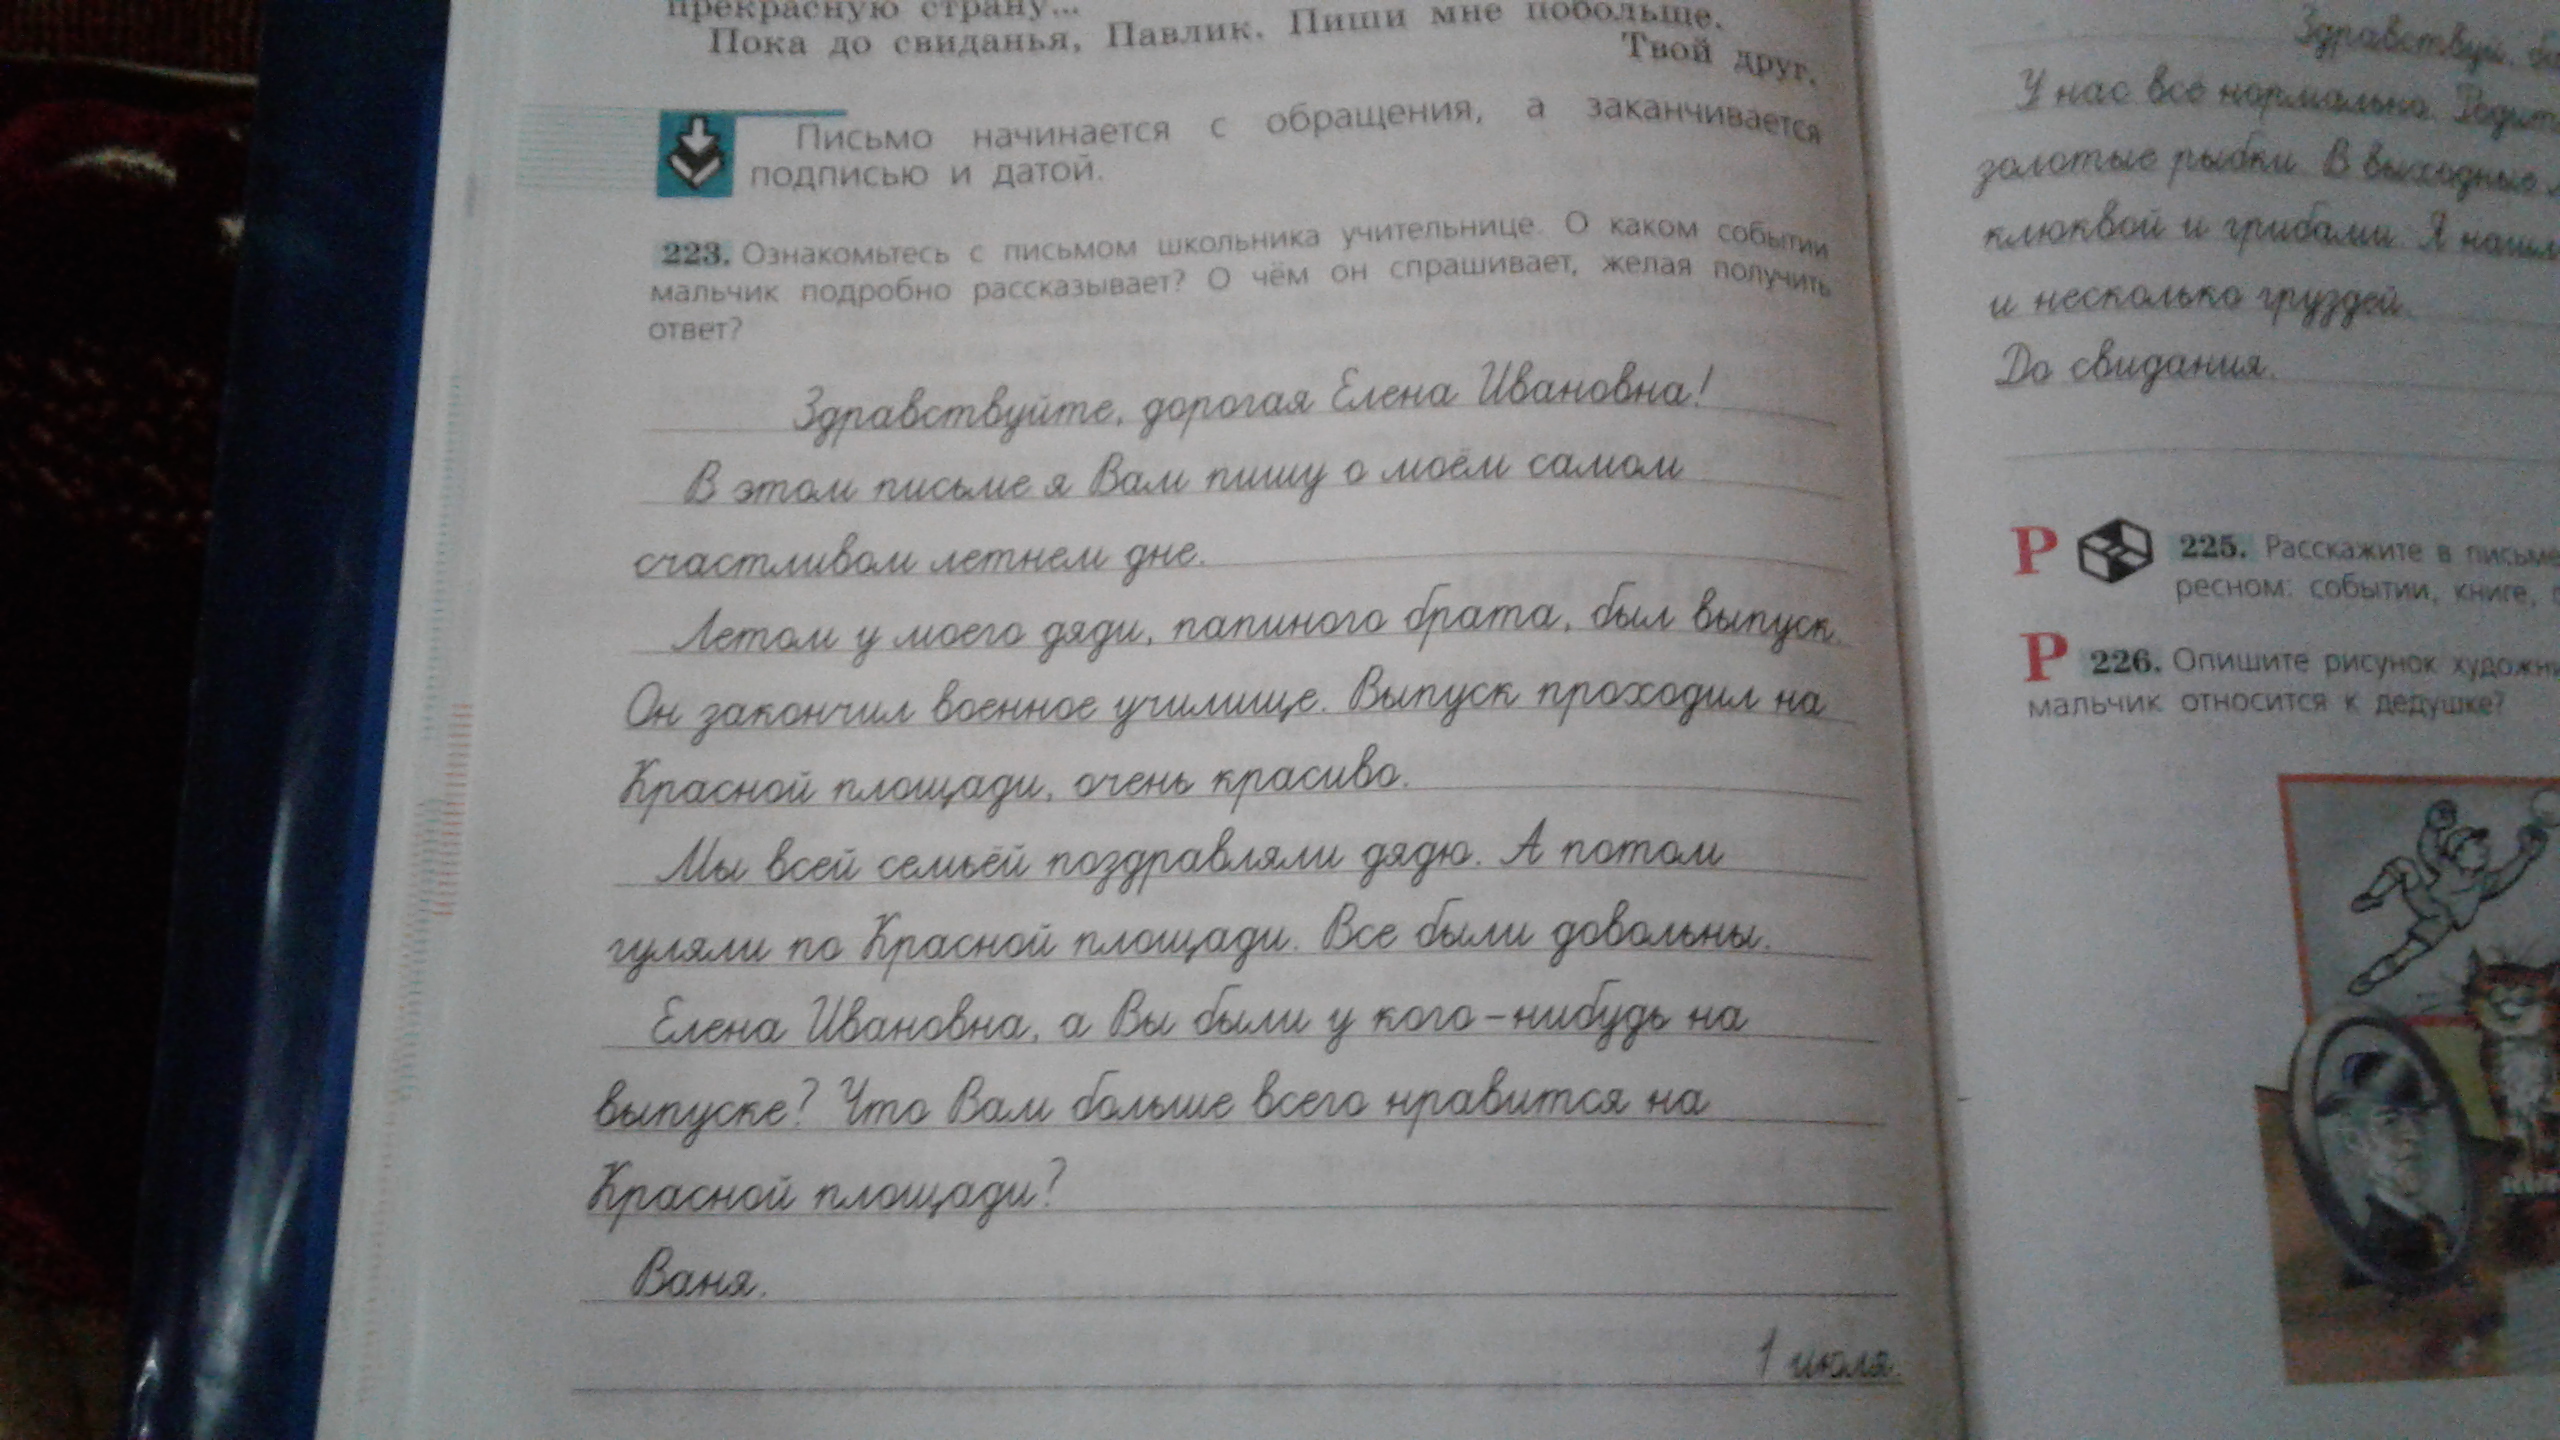 прекрасную страну...
Пока до свиданья, Павлик. Пиши мне побольше.
Твой друг.
Письмо начинается с обращения, а заканчивается
подписью и датой.
223. Ознакомьтесь с письмом школьника учительнице. О каком событии
мальчик подробно рассказывает? О чём он спрашивает, желая получить
ответ?
Здравствуйте, дорогая Елена Ивановна!
В этом письме я Вам пишу о моём самом
счастливом летнем дне.
Летом у моего дяди, папиного брата, был выпуск.
Он закончил военное училище. Выпуск проходил на
Красной площади, очень красиво.
Мы всей семьёй поздравляли дядю. А потом
гуляли по Красной площади. Все были довольны.
Елена Ивановна, а Вы были у кого-нибудь на
выпуске? Что Вам больше всего нравится на
Красной площади?
Ваня.
1 июля.
Здравствуй,
У нас все нормально.
золотые рыбки. В выходные
клюквой и грибами. Я
и несколько груздей.
До свидания.
Р 225. Расскажите в
ресном: событии, книге,
Р 226. Опишите рисунок
мальчик относится к дедушке?